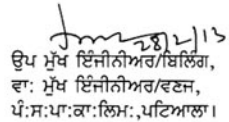 28/2/13
ਉਪ ਮੁੱਖ ਇੰਜੀਨੀਅਰ/ਬਿਲਿੰਗ,
ਵਾ: ਮੁੱਖ ਇੰਜੀਨੀਅਰ/ਵਣਜ,
ਪੰ:ਸ:ਪਾ:ਕਾ:ਲਿਮ:,ਪਟਿਆਲਾ।